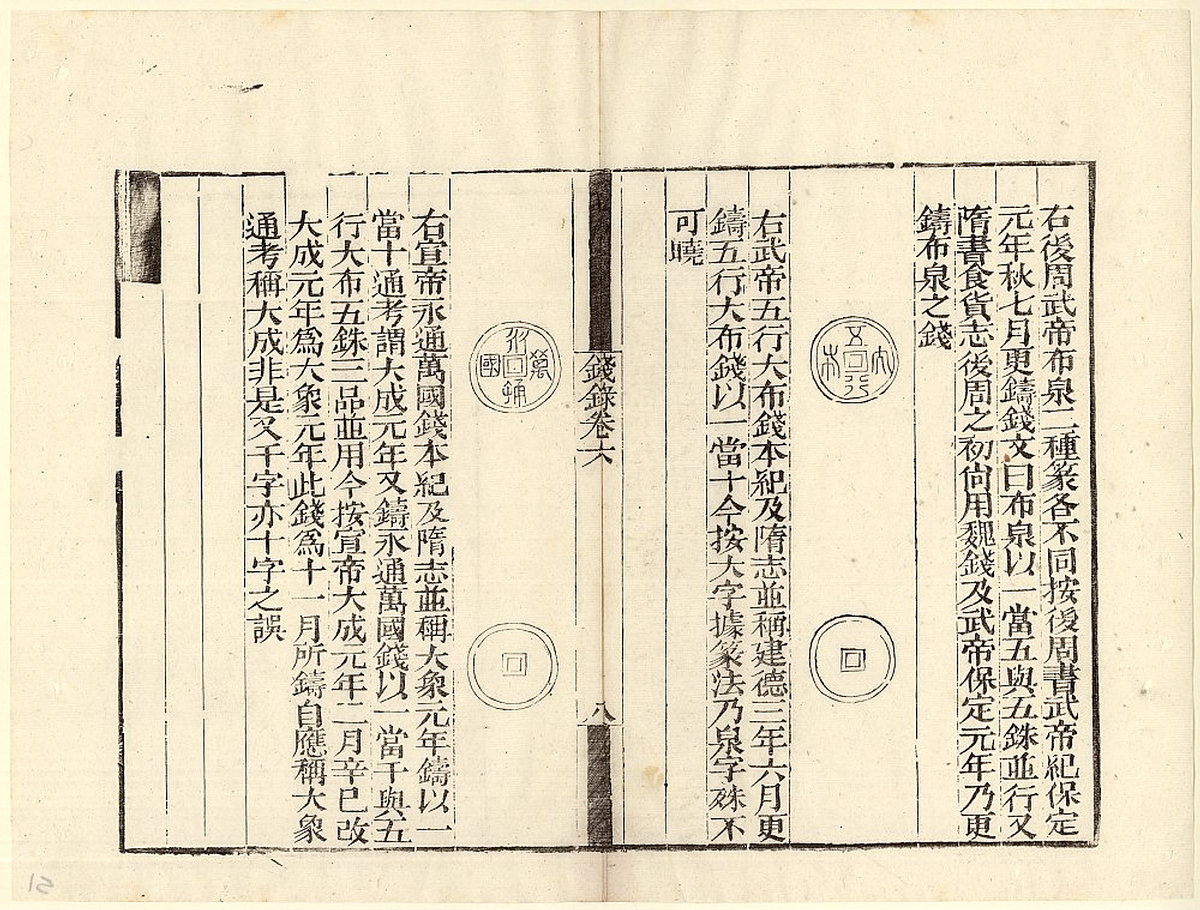 右後周武帝布泉二種篆各不同按後周書武帝紀保定
元年秋七月更鑄錢文曰布泉以一當五與五銖並行又
隋書食貨志後周之初尚用魏錢及武帝保定元年乃更
鑄布泉之錢
五行大布
右武帝五行大布錢本紀及隋志並稱建德三年六月更
鑄五行大布錢以一當十今按大字據篆法乃泉字殊不
可曉
錢錄卷六
八
永通萬國
右宣帝永通萬國錢本紀及隋志並稱大象元年鑄以一
當十通考謂大成元年又鑄永通萬國錢以一當千與五
行大布五銖三品並用今按宣帝大成元年二月辛巳改
大成元年為大象元年此錢為十一月所鑄自應稱大象
通考稱大成非是又千字亦十字之誤
15